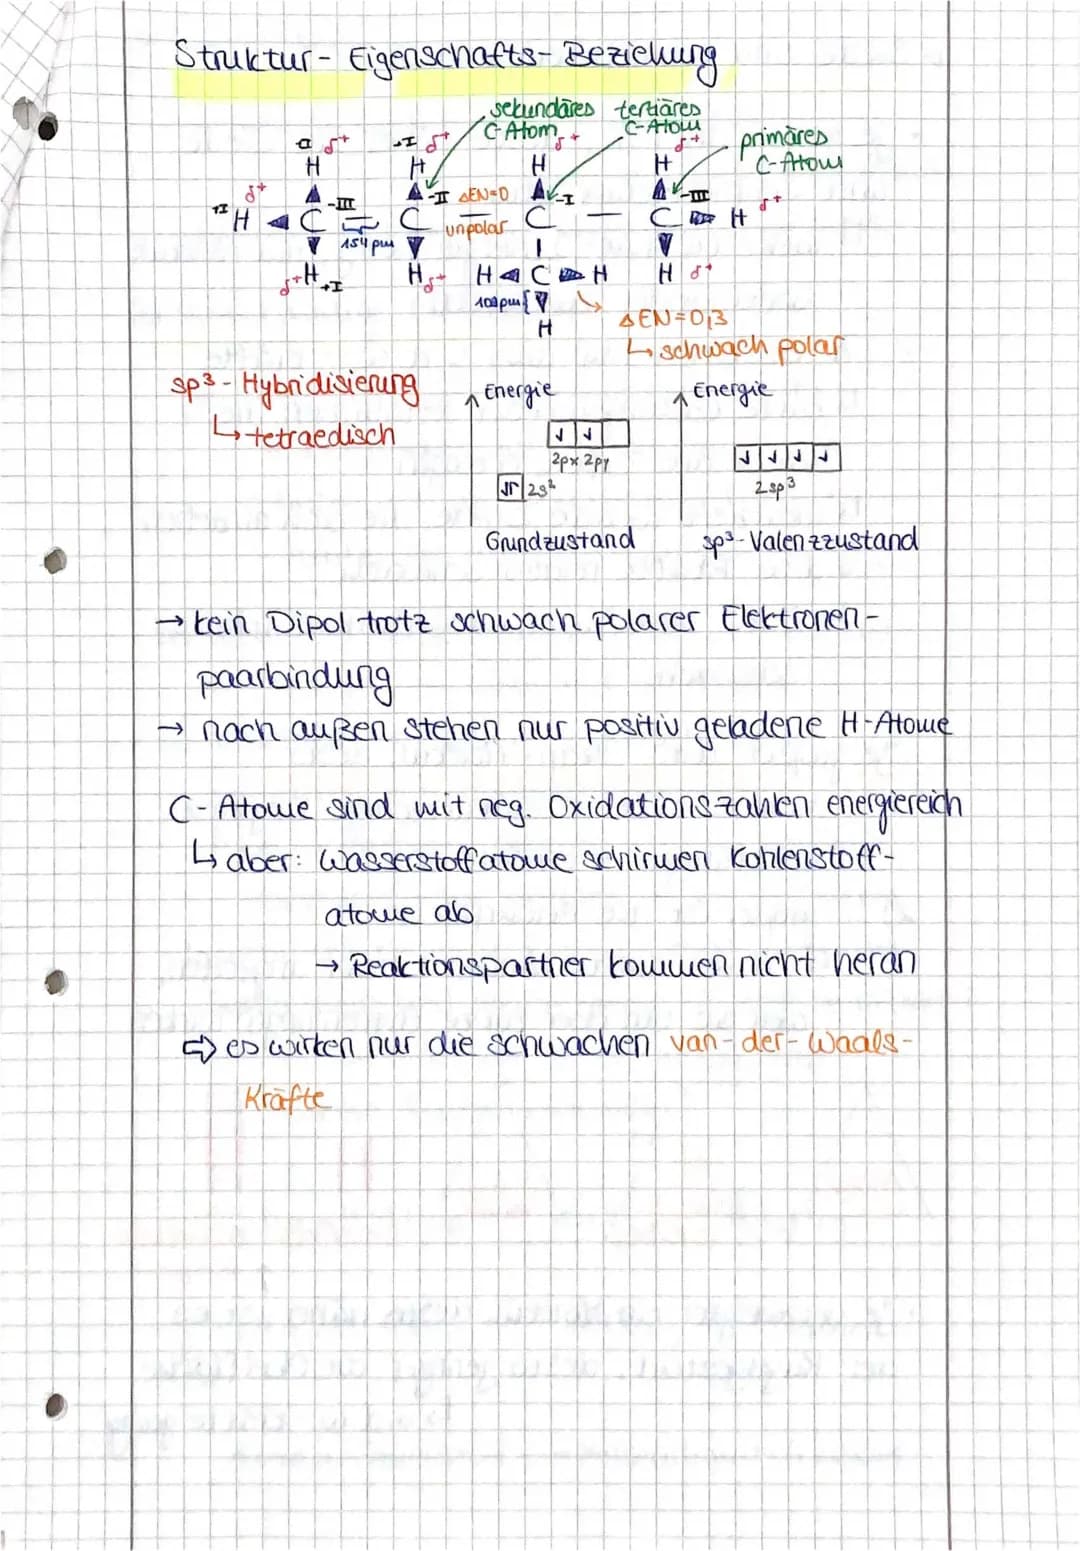 Struktur - Eigenschafts - Beziehung
sekundäres tertiäres
C-Atom C-Atom primäres
C-Atom
δ+ +I δ+ δ+ δ+
H H H H
δ+ -III -II ΔEN=0 -I -III δ+
+I H C C unpolar C — C H
154 pm
δ+ H +I H δ+ H C H H δ+
109pm{
H
ΔEN=0,3
↳ schwach polar
sp³ - Hybridisierung
↳ tetraedisch
Energie Energie
2px 2py
2s²
2sp³
Grundzustand sp³-Valenzzustand
→ kein Dipol trotz schwach polarer Elektronen-
paarbindung
→ nach außen stehen nur positiv geladene H-Atome
C-Atome sind mit neg. Oxidationszahlen energiereich
↳ aber: Wasserstoffatome schirmen Kohlenstoff-
atome ab
→ Reaktionspartner kommen nicht heran
⇨ es wirken nur die schwachen van-der-Waals-
Kräfte